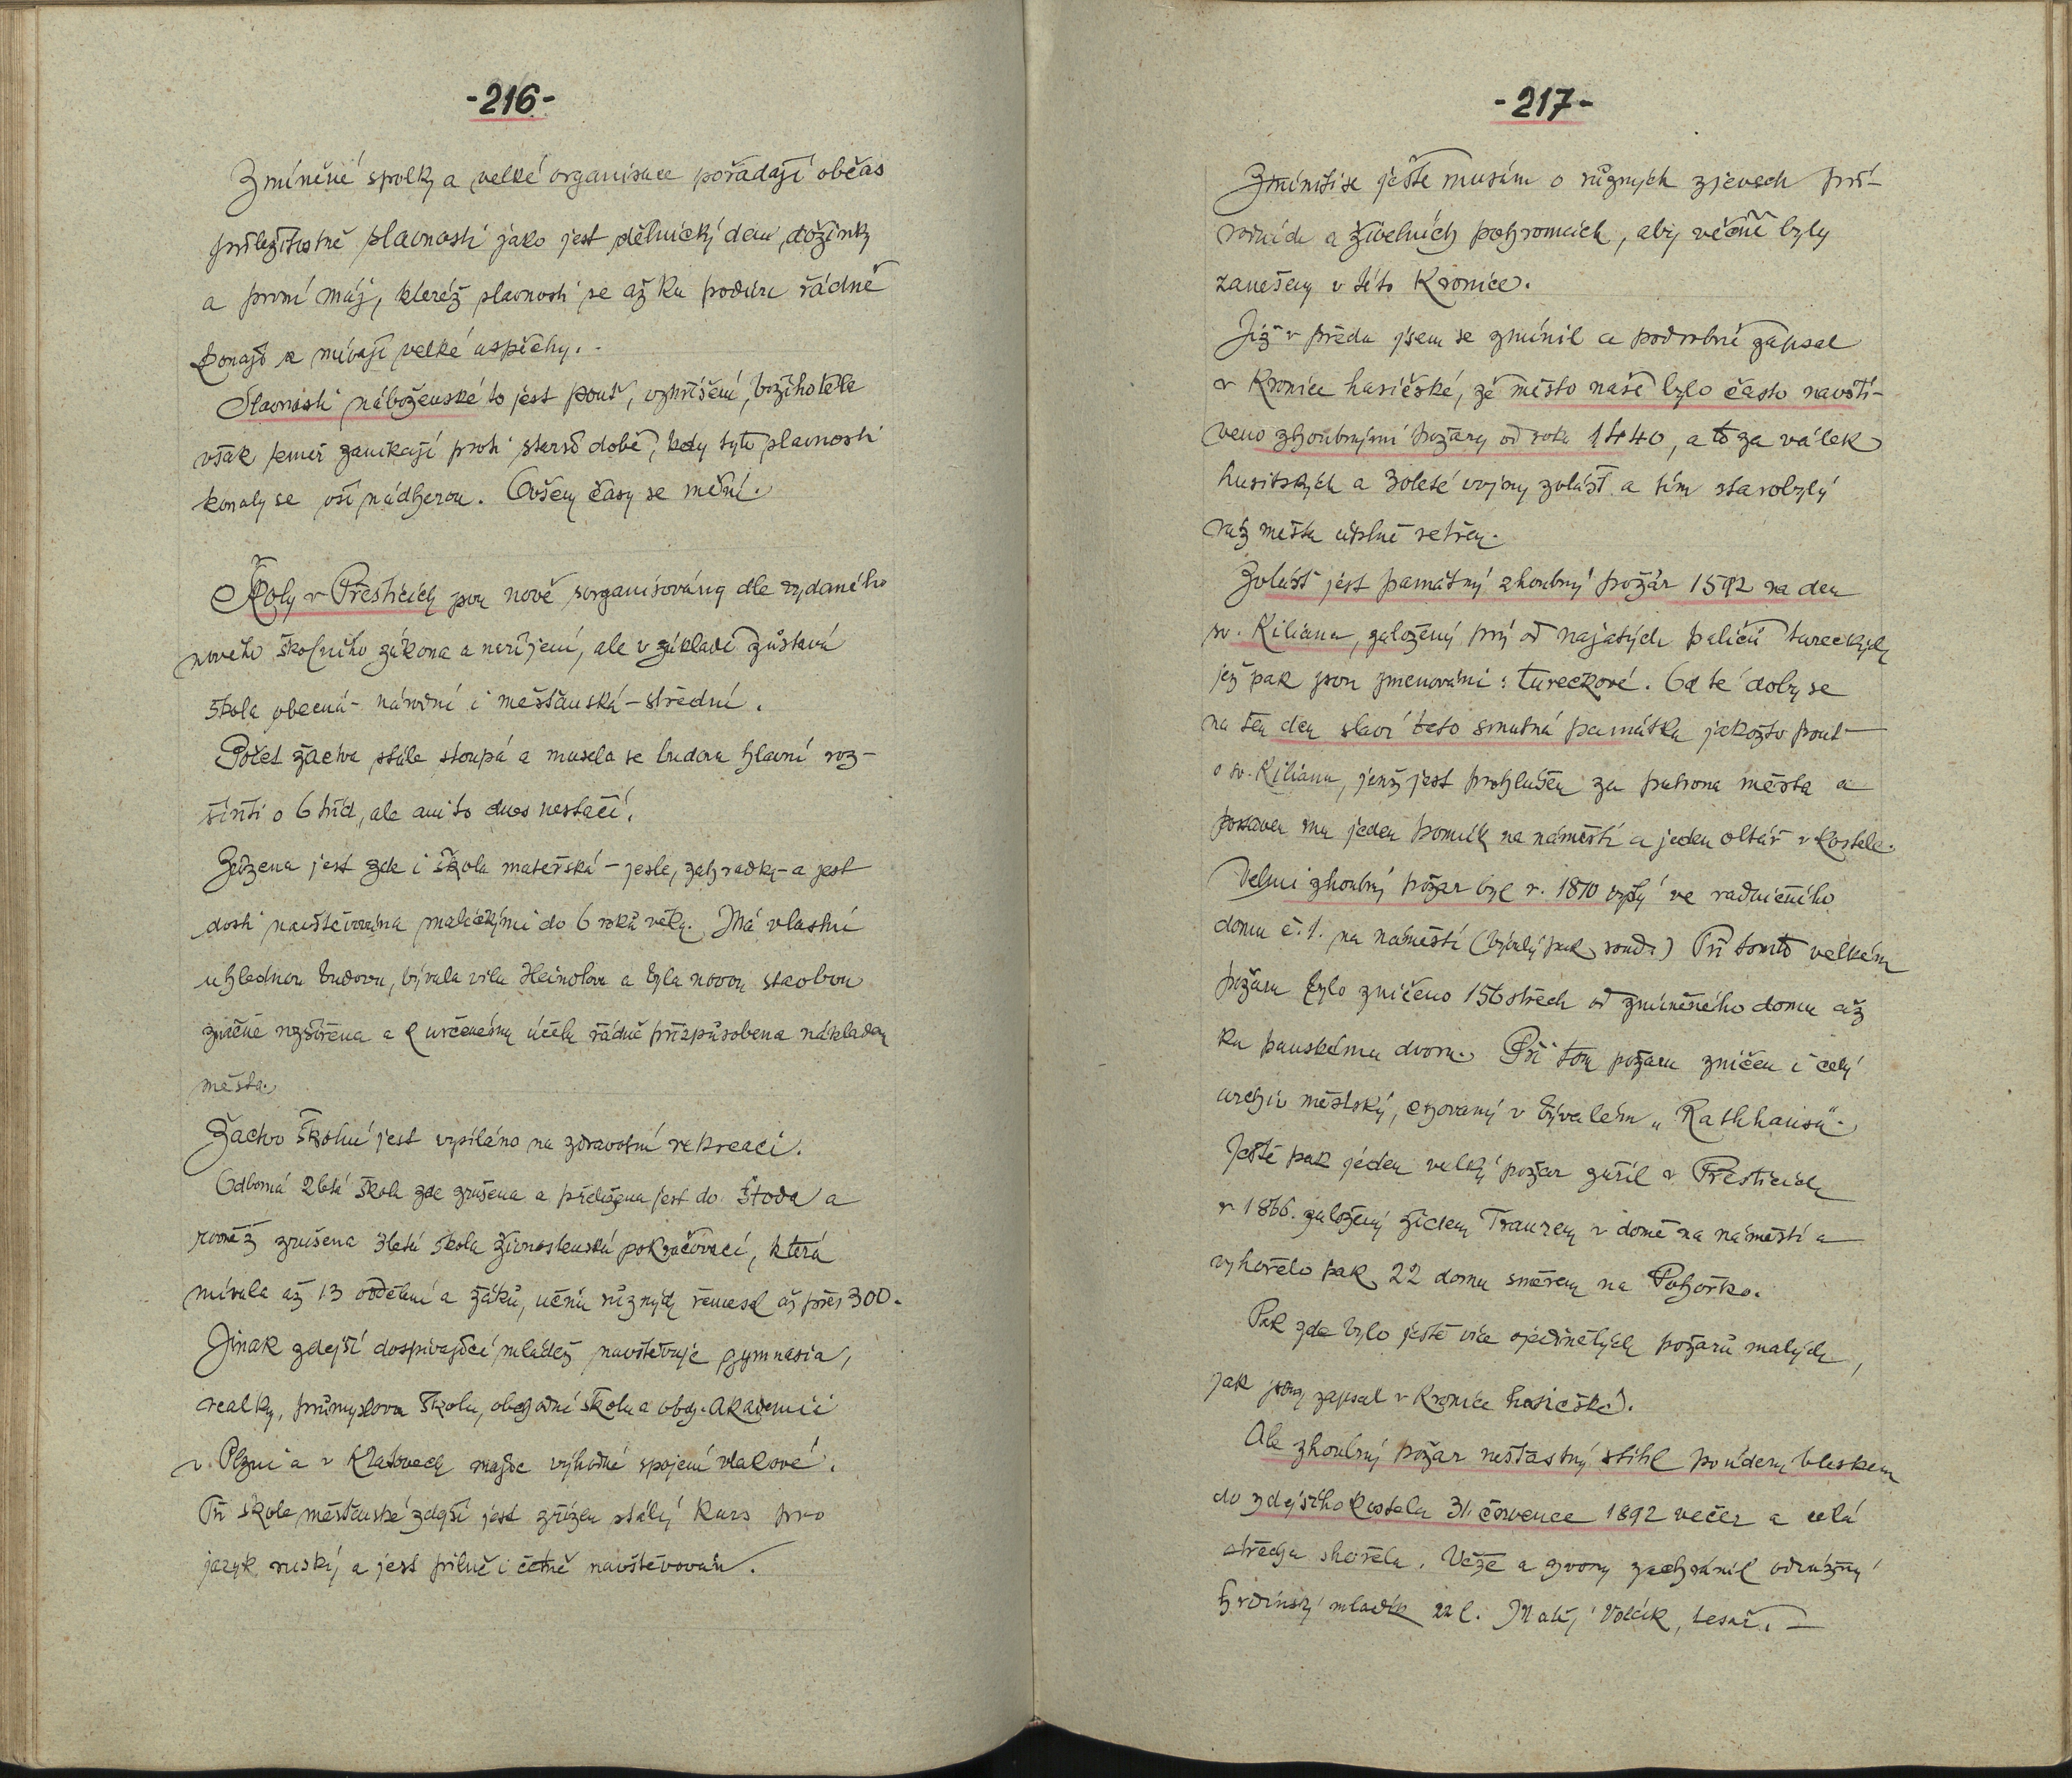 -216-
Zmíněné spolky a velké organisace pořádají občas
příležitostné slavnosti jako jest dělnický den, dožinky
a první máj, kteréž slavnosti se až ku podivu řádně
konají a mívají velké úspěchy.
Slavnosti náboženské to jest pouť, vzkříšení, božího těla
však téměř zanikají proti starší době, kdy tyto slavnosti
konaly se vší nádherou. Ovšem časy se mění.
Školy v Přešticích jsou nově sorganisovány dle vydaného
nového školního zákona a nařízení, ale v základě zůstává
škola obecná - národní i měšťanská - střední.
Počet žactva stále stoupá a musela se budova hlavní roz-
šířiti o 6 tříd, ale ani to dnes nestačí.
Zřízena jest zde i škola mateřská - jesle, zahrádky - a jest
dosti navštěvována maličkými do 6 roků věku. Má vlastní
úhlednou budovu, bývala vila Heinolova a byla novou stavbou
značně rozšířena a k určenému účelu řádně přizpůsobena nákladem
města.
Žactvo školní jest vysíláno na zdravotní rekreaci.
Odborná 2letá škola zde zrušena a přeložena jest do Štoda a
rovněž zrušena 3letá škola živnostenská pokračovací, která
mívala až 13 oddělení a žáků, učňů různých řemesel až přes 300.
Jinak zdejší dospívající mládež navštěvuje gymnasia,
realky, průmyslovou školu, obchodní školu a obch. akademii
v Plzni a v Klatovech majíc výhodné spojení vlakové.
Při škole měšťanské zdejší jest zřízen stálý kurs pro
jazyk ruský a jest pilně i četně navštěvován.
-217-
Zmíniti se ještě musím o různých zjevech pří-
rodních a živelních pohromách, aby věčně byly
zanešeny v této Kronice.
Již v předu jsem se zmínil a podrobně zapsal
v Kronice hasičské, že město naše bylo často navští-
veno zhoubnými požáry od roku 1440, a to za válek
husitských a 30leté vojny zvlášť a tím starobylý
ráz města úplně setřen.
Zvlášť jest památný zhoubný požár 1592 na den
sv. Kiliana, založený prý od najatých paličů tureckých
jež pak jsou jmenováni: turečkové. Od té doby se
na ten den slaví teto smutná památka jakožto pouť
o sv. Kilianu, jenž jest prohlášen za patrona města a
postaven mu jeden pomník na náměstí a jeden oltář v kostele.
Velmi zhoubný požár byl r. 1810 vyšlý ve radničního
domu č. 1. na náměstí (bývalý pak soud) Při tomto velkém
požáru bylo zničeno 156 střech od zmíněného domu až
ku panskému dvoru. Při tom požáru zničen i celý
archiv městský, chovaný v bývalém „Rathhausu“.
Ještě pak jeden velký požár zuřil v Přešticích
r 1866. založený židem Traurem v domě na náměstí a
vyhořelo pak 22 domů směrem na Pohořko.
Pak zde bylo ještě více ojedinělých požárů malých,
jak jsem zapsal v Kronice hasičské.
Ale zhoubný požár nešťastný stihl po úderu bleskem
do zdejšího kostela 31. července 1892 večer a celá
střecha shořela. Věže a zvony zachránil odvážný
hrdinský mladík 22 l. Matěj Volčík, tesař. -